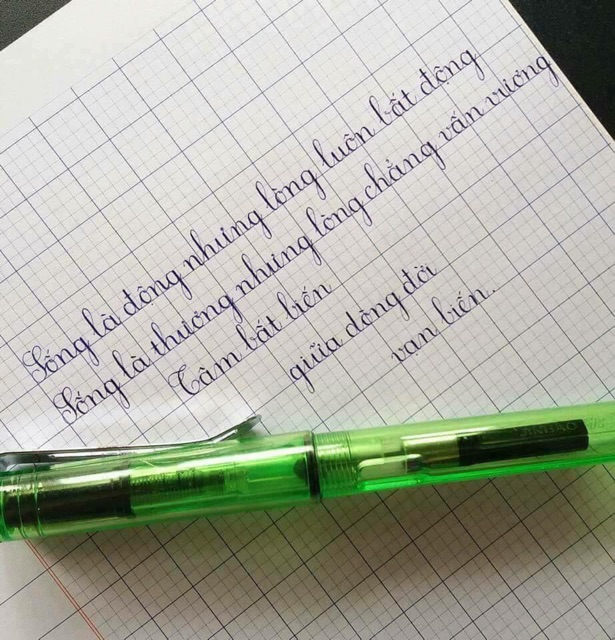 Sống là động nhưng lòng luôn bất động
Sống là thương nhưng lòng chẳng vấn vương
Tâm bất biến
giữa dòng đời
vạn biến.
JINHAO